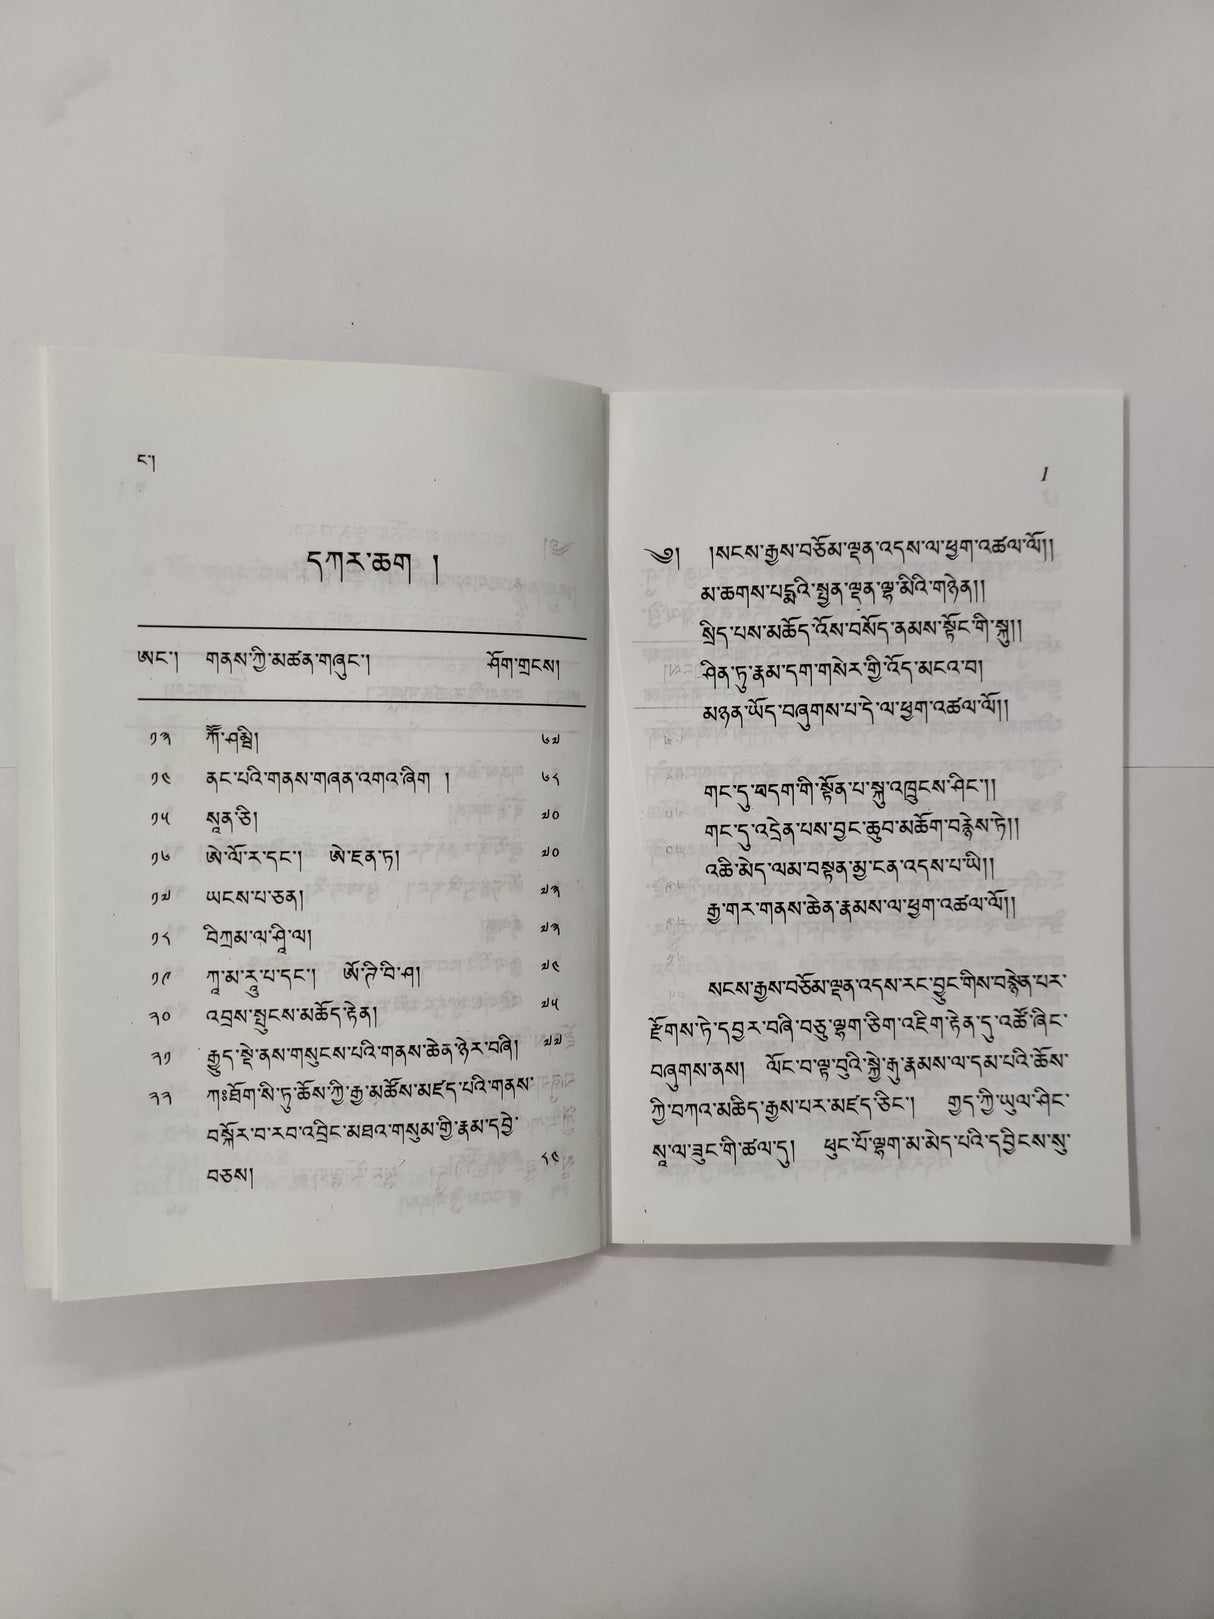 ང་།
དཀར་ཆག །
ཨང་། གནས་ཀྱི་མཚན་གཞུང་། ཤོག་གྲངས།
༡༣ ཀཽ་ཤམྦི། ༦༧
༡༤ ནང་པའི་གནས་གཞན་འགའ་ཞིག ། ༦༨
༡༥ སཱན་ཅི། ༧༠
༡༦ ཨེ་ལོ་ར་དང་། ཨེ་ཇན་ཏ། ༧༠
༡༧ ཡངས་པ་ཅན། ༧༣
༡༨ བིཀྲམ་ལ་ཤཱི་ལ། ༧༣
༡༩ ཀཱ་མ་རཱུ་པ་དང་། ཨོ་ཌི་བི་ཤ། ༧༤
༢༠ འབྲས་སྤུངས་མཆོད་རྟེན། ༧༥
༢༡ རྒྱུད་སྡེ་ནས་གསུངས་པའི་གནས་ཆེན་ཉེར་བཞི། ༧༧
༢༢ ཀཿཐོག་སི་ཏུ་ཆོས་ཀྱི་རྒྱ་མཚོས་མཛད་པའི་གནས་
བསྐོར་བ་རབ་འབྲིང་མཐའ་གསུམ་གྱི་རྣམ་དབྱེ་
བཅས། ༨༤
1
༄༅། །སངས་རྒྱས་བཅོམ་ལྡན་འདས་ལ་ཕྱག་འཚལ་ལོ།།
མ་ཆགས་པདྨའི་སྤྱན་ལྡན་ལྷ་མིའི་གཉེན།།
སྲིད་པས་མཆོད་འོས་བསོད་ནམས་སྟོང་གི་སྐུ།།
ཤིན་ཏུ་རྣམ་དག་གསེར་གྱི་འོད་མངའ་བ།
མཉན་ཡོད་བཞུགས་པ་དེ་ལ་ཕྱག་འཚལ་ལོ།།
གང་དུ་ཐདག་གི་སྟོན་པ་སྐུ་འཁྲུངས་ཤིང་།།
གང་དུ་འདྲེན་པས་བྱང་ཆུབ་མཆོག་བརྙེས་ཏེ།།
འཆི་མེད་ལམ་བསྟན་མྱ་ངན་འདས་པ་ཡི།།
རྒྱ་གར་གནས་ཆེན་རྣམས་ལ་ཕྱག་འཚལ་ལོ།།
སངས་རྒྱས་བཅོམ་ལྡན་འདས་རང་བྱུང་གིས་བསྙེན་པར་
རྫོགས་ཏེ་དབྱར་བཞི་བཅུ་ལྷག་ཅིག་འཇིག་རྟེན་དུ་འཚོ་ཞིང་
བཞུགས་ནས། ལོང་བ་ལྟ་བུའི་སྐྱེ་རྒུ་རྣམས་ལ་དམ་པའི་ཆོས་
ཀྱི་བཀའ་མཆིད་རྒྱས་པར་མཛད་ཅིང་། གྱད་ཀྱི་ཡུལ་ཤིང་
སཱ་ལ་ཟུང་གི་ཚལ་དུ། ཕུང་པོ་ལྷག་མ་མེད་པའི་དབྱིངས་སུ་